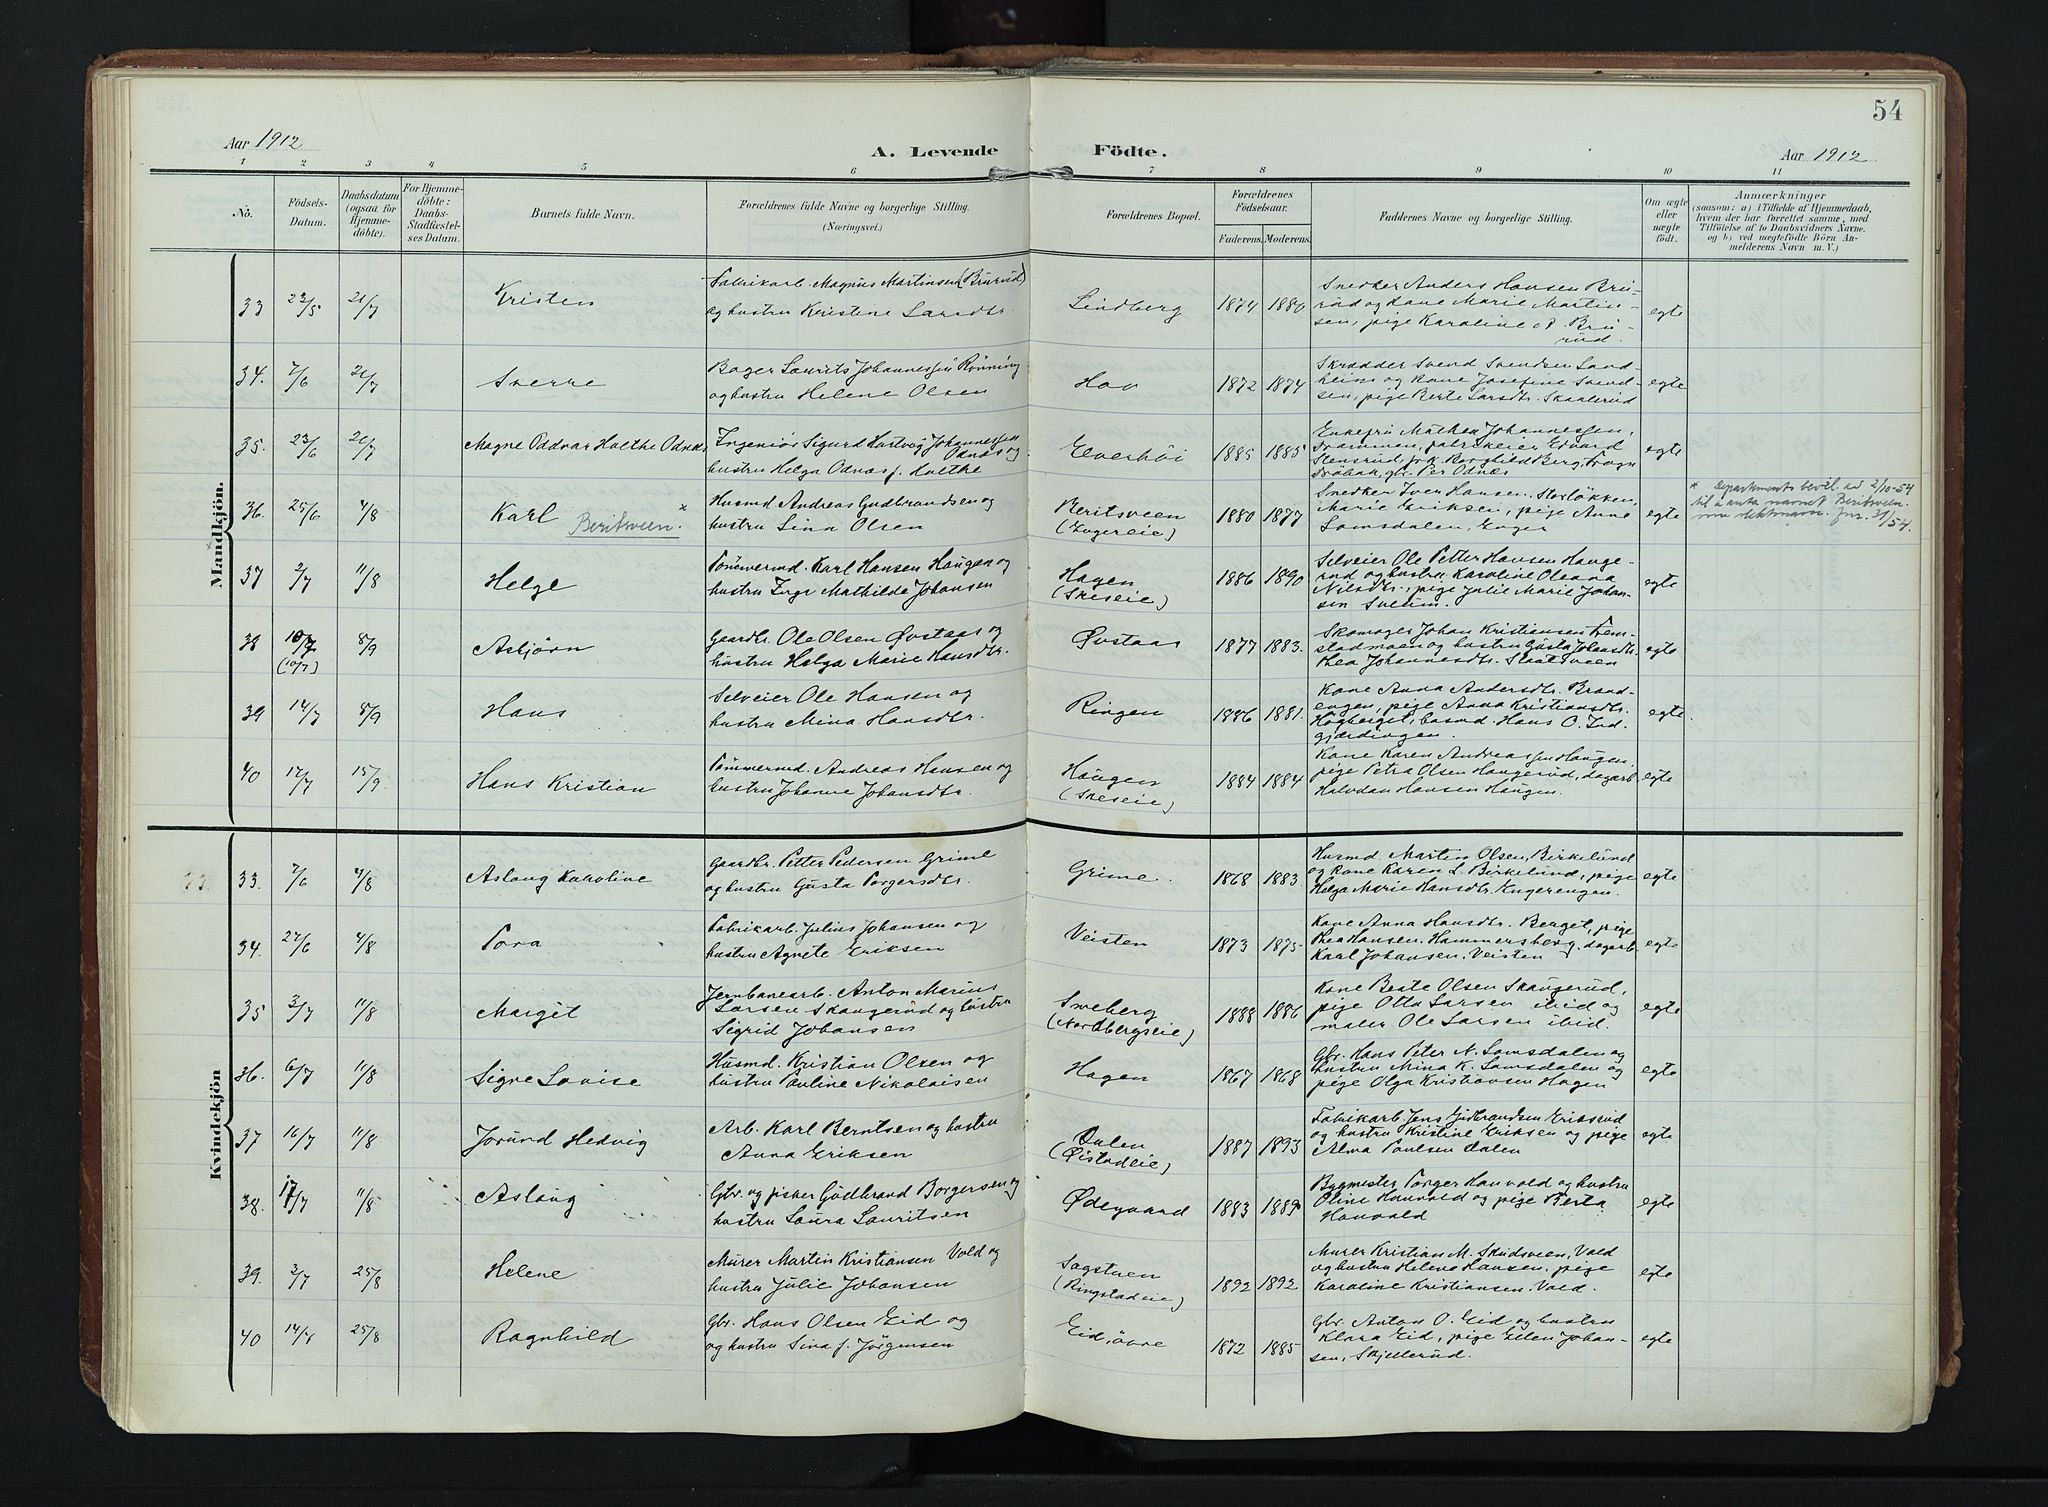 54
Aar 1912
A. Levende Födte.
Aar 1912
1 2 3 4 5 6 7 8 9 10 11
No.
Födsels-Datum.
Daabsdatum (ogsaa for Hjemme-döbte).
For Hjemme-döbte: Daabs-Stadfæstel-ses Datum.
Barnets fulde Navn.
Forældrenes fulde Navne og borgerlige Stilling. (Næringsvei.)
Forældrenes Bopæl.
Forældrenes Födselsaar.
Faderens. Moderens.
Faddernes Navne og borgerlige Stilling.
Om ægte eller uægte födt.
Anmærkninger
(saasom: a) i Tilfælde af Hjemmedaab, hvem der har forrettet samme, med Tilföielse af to Daabsvidners Navne. og b) ved uægtefödte Börn An-melderens Navn m. V.)
Mandkjön.
33 23/5 21/7 Kristen
Fabrikarb. Magnus Martinsen (Brurud)
og hustru Kristine Larsdtr.
Lindberg 1874 1880
Snedker Anders Hansen Bru-
rud og kone Marie Martin-
sen, pige Karoline A. Bru-
rud.
egte
34. 7/6 21/7 Sverre
Bager Laurits Johannessen Rønning
og hustru Helene Olsen
Hov 1872 1874
Skrædder Svend Svendsen Land-
heim og kone Josefine Svend-
sen, pige Berte Larsdtr. Skaalerud
egte
35. 23/6 21/7 Magne Oddvar Holthe Odnæs
Ingeniør Sigurd Hartvig Johannessen
Odnæs og
hustru Helga Odnæs f. Holthe
Elverhøi 1885 1885
Enkefru Mathea Johannessen,
Drammen, fabrikeier Edvard
Stensrud, frk. Borghild Berg, Frogn
Drøbak, gbr. Per Odnæs
egte
36. 25/6 4/8 Karl Beritsveen *
Husmd. Andreas Gudbrandsen og
hustru Lina Olsen
Beritsveen
(Engereie)
1880 1877
Snedker Iver Hansen, Storløkken,
Marie Eriksen, pige Anna
Lomsdalen, Enger
egte
* Departments bevil. av 2/10-54
til å anta navnet Beritsveen
som slektsnavn. jnr. 31/54.
37 2/7 11/8 Helge
Tømmermd. Karl Hansen Haugen og
hustru Inga Mathilde Johansen
Hagen
(Skeseie)
1886 1890
Selveier Ole Petter Hansen Hauge-
rud og hustru Karoline Oleana
Nilsdtr., pige Julie Marie Johan-
sen Sveum.
egte
38 10/7 (10/7) 8/9 Asbjørn
Gaardbr. Ole Olsen Øvstaas og
hustru Helga Marie Hansdtr.
Øvstaas 1877 1883.
Skomager Johan Kristiansen Frem-
stadmoen og hustru Gusta Johansdtr.
Thea Johannesdtr. Staatsveen
egte
39 14/7 8/9 Hans
Selveier Ole Hansen og
hustru Mina Hansdtr.
Ringen 1886 1881.
Kone Anna Andersdtr. Brand-
engen, pige Anna Kristiansdtr.
Høgberget, husmd. Hans O. Ind-
gjærdingen.
egte.
40 17/7 15/9 Hans Kristian
Tømmermd. Andreas Hansen og
hustru Johanne Johansdtr.
Haugen
(Skeseie)
1884 1884
Kone Karen Andreassen Haugen,
pige Petra Olsen Haugerud, dagarb.
Halvdan Hansen Haugen.
egte
Kvindekjön
33. 7/6 4/8 Aslaug Karoline
Gaardbr. Petter Pedersen Grime
og hustru Gusta Torgersdtr.
Grime. 1868 1883
Husmd. Martin Olsen, Birkelund
og kone Karen L. Birkelund, pige
Helga Marie Hansdtr. Engerengen.
egte
34. 27/6 4/8 Tora
Fabrikarb. Julius Johansen og
hustru Agnete Eriksen
Veisten 1873 1875
Kone Anna Hansdtr. Berget, pige
Thea Hansen Hammersberg, dagarb.
Karl Johansen, Veisten
egte
35 3/7 11/8 Margit
Jernbanearb. Anton Marius
Larsen Skaugerud og hustru
Sigrid Johansen
Sveberg
(Nordbergseie)
1888 1886
Kone Beate Olsen Skaugerud,
pige Otta Larsen ibid og
maler Ole Larsen ibid.
egte
36. 6/7 11/8 Signe Lovise
Husmd. Kristian Olsen og
hustru Pauline Nikolaisen
Hagen 1867 1868
Gbr. Hans Peter N. Lomsdalen og
hustru Mina K. Lomsdalen og
pige Olga Kristiansen Hagen
egte
37 16/7 11/8 Jorund Hedvig
Arb. Karl Berntsen og hustru
Anna Eriksen
Dalen
(Øistadeie)
1887 1893
Fabrikarb. Jens Gudbrandsen Eriksrud
og hustru Kristine Eriksen og pige
Alma Paulsen Dalen
egte
38. 17/7 11/8 Aslaug
Gbr. og fisker Gudbrand Borgersen og
hustru Laura Lauritsen
Ødegaard 1883 1889
Bygmester Torger Hauvold og hustru
Oline Hauvold og pige Berta
Hauvald
egte
39. 3/7 25/8 Helene
Murer Martin Kristiansen Vold og
hustru Julie Johansen
Sagstuen
(Ringstadeie)
1892 1892
Murer Kristian M. Skudsveen, Vold
og hustru Helene Hansen, pige
Karoline Kristiansen, Vold.
egte
40 14/4 25/8 Ragnhild
Gbr. Hans Olsen Eid og
og hustru Lina f. Jørgensen
Eid, øvre 1872 1885
Gbr. Anton O. Eid og hustru
Klara Eid, pige Ellen Johan-
sen, Skjellerud.
egte